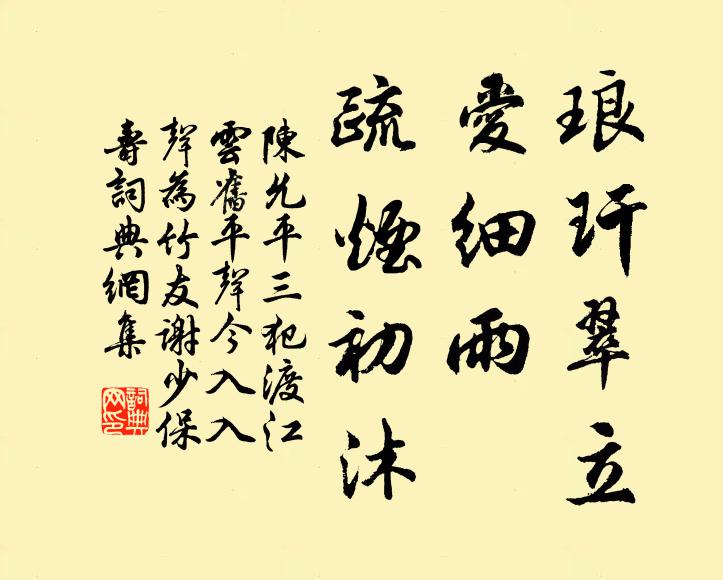 琅玕翠立
愛細雨
疏煙初沐
陳允平三犯渡江
雲舊平聲今入入
聲為竹友謝少保
壽詞典網集
詞典
网印